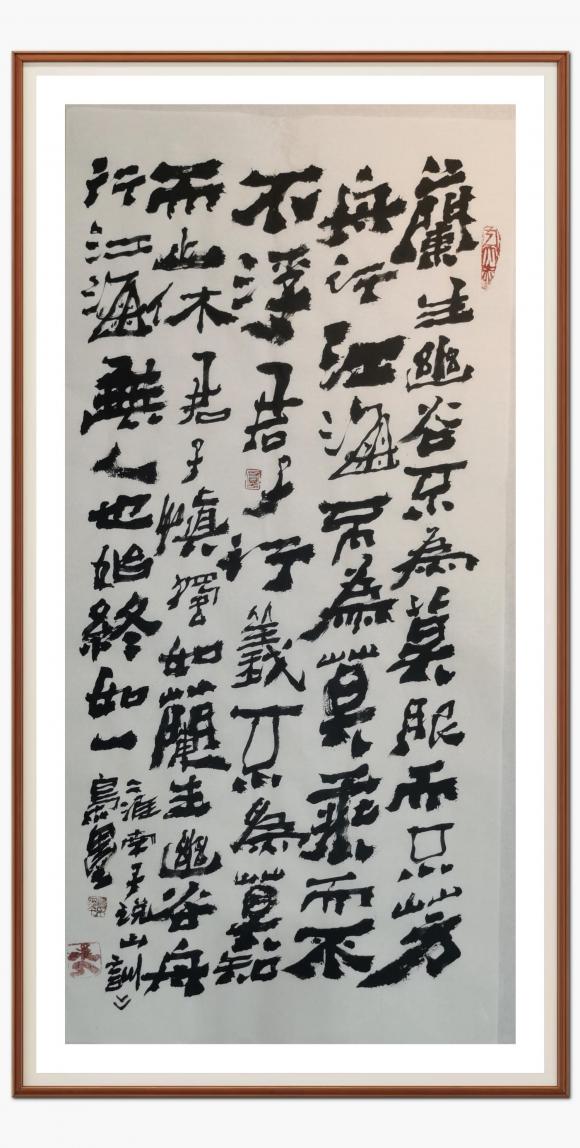 蘭生幽谷不為莫服而不芳
舟行江海不為莫乘而不
不浮君子行義不為莫知
而止休君子慎獨如蘭生幽谷舟
行江海無人也始終如一
淮南子説山訓